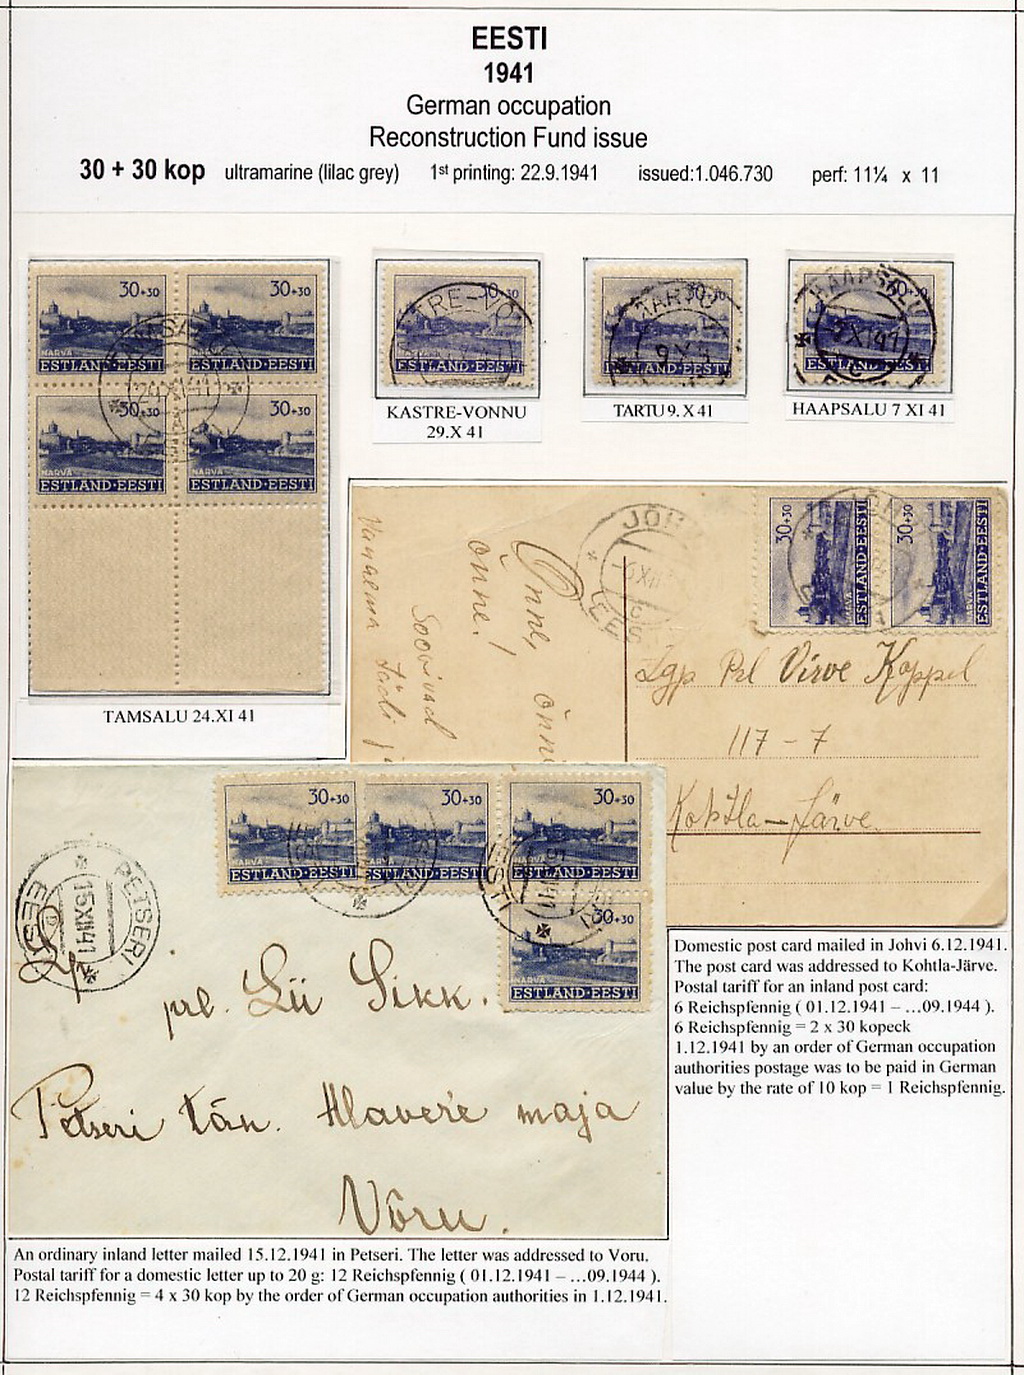 EESTI
1941
German occupation
Reconstruction Fund issue
30 + 30 kop ultramarine (lilac grey) 1st printing: 22.9.1941 issued:1.046.730 perf: 11¼ x 11
30+30
NARVA
ESTLAND·EESTI
30+30
NARVA
ESTLAND·EESTI
30+30
NARVA
ESTLAND·EESTI
30+30
NARVA
ESTLAND·EESTI
24.XI 41
TAMSALU 24.XI 41
30+30
ESTLAND·EESTI
TRE-VO
KASTRE-VONNU
29.X 41
30+30
ESTLAND·EESTI
TARTU
TARTU 9. X 41
30+30
ESTLAND·EESTI
HAAPSALU
7 XI 41
HAAPSALU 7 XI 41
30+30
NARVA
ESTLAND·EESTI
30+30
NARVA
ESTLAND·EESTI
Õnne,
õnne!
Soovivad
Virve Koppel
117 - 7
Kohtla-Järve.
30+30
NARVA
ESTLAND·EESTI
30+30
NARVA
ESTLAND·EESTI
30+30
NARVA
ESTLAND·EESTI
30+30
NARVA
ESTLAND·EESTI
PETSERI
15XII41
EESTI
prl. Lii Sikk.
Petseri tän. Hlavere maja
Võru.
Domestic post card mailed in Johvi 6.12.1941.
The post card was addressed to Kohtla-Järve.
Postal tariff for an inland post card:
6 Reichspfennig ( 01.12.1941 – ...09.1944 ).
6 Reichspfennig = 2 x 30 kopeck
1.12.1941 by an order of German occupation
authorities postage was to be paid in German
value by the rate of 10 kop = 1 Reichspfennig.
An ordinary inland letter mailed 15.12.1941 in Petseri. The letter was addressed to Voru.
Postal tariff for a domestic letter up to 20 g: 12 Reichspfennig ( 01.12.1941 – ...09.1944 ).
12 Reichspfennig = 4 x 30 kop by the order of German occupation authorities in 1.12.1941.